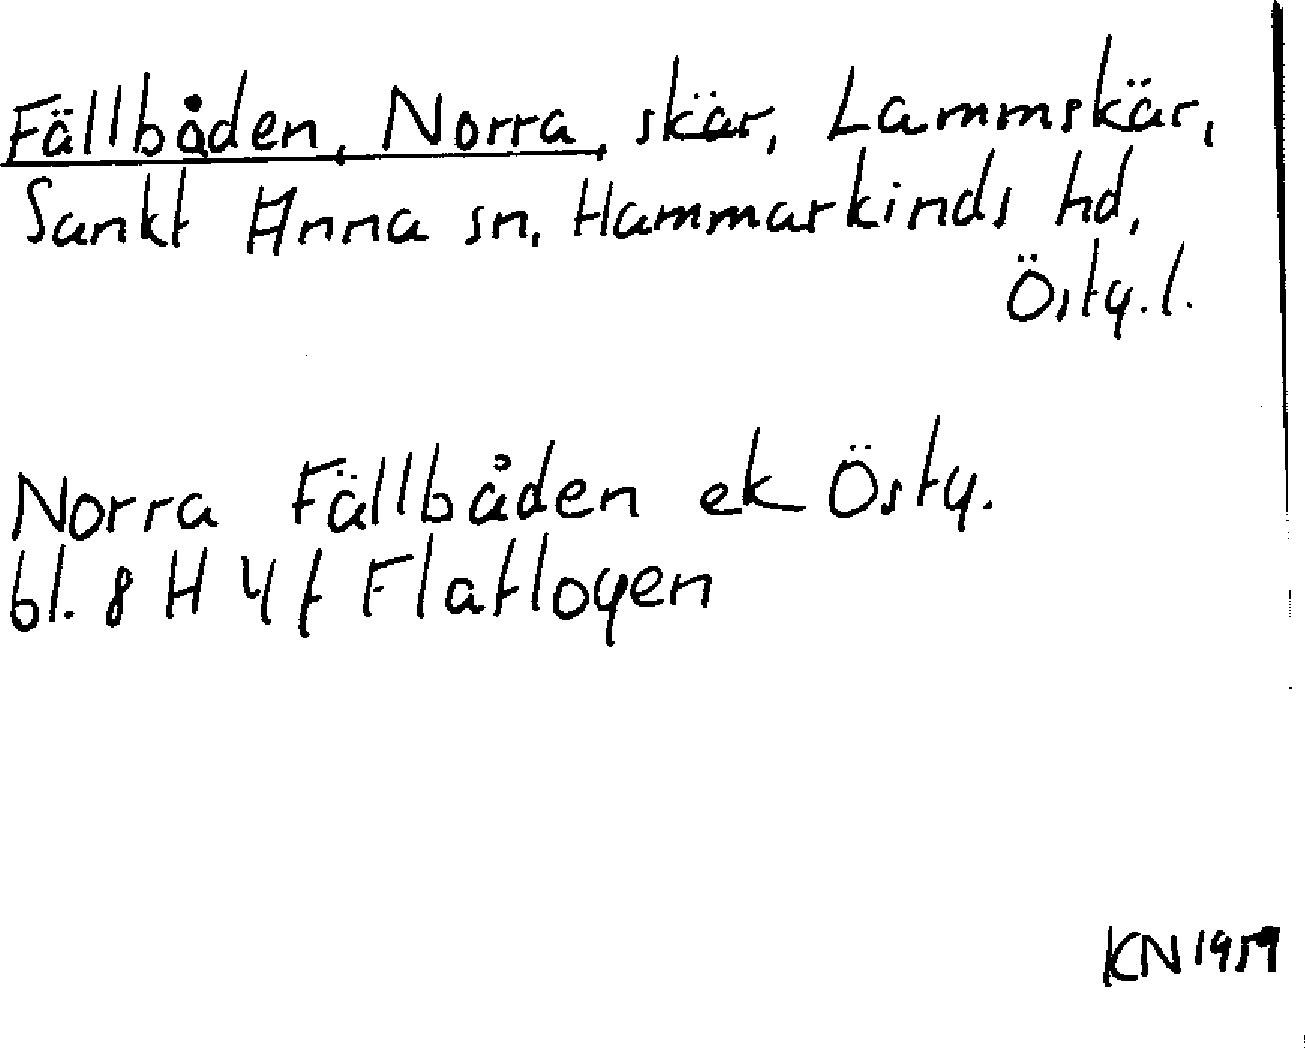 Fällbåden, Norra, skär, Lammskär,
Sankt Anna sn, Hammarkinds hd,
Östg. l.
Norra Fällbåden ek Östg.
bl. 8 H 4 f Flatlogen
KN 1959